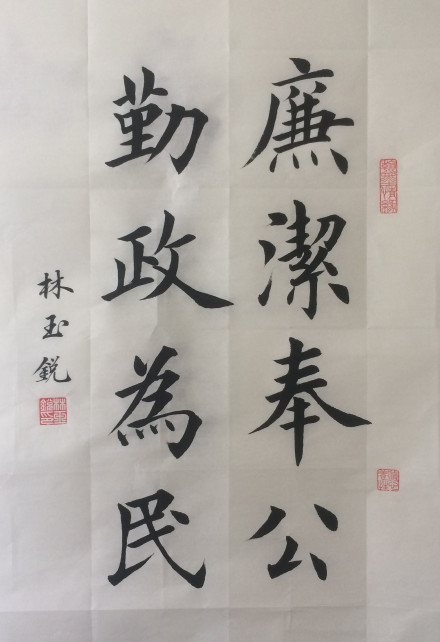 廉潔奉公
勤政為民
林玉鋭